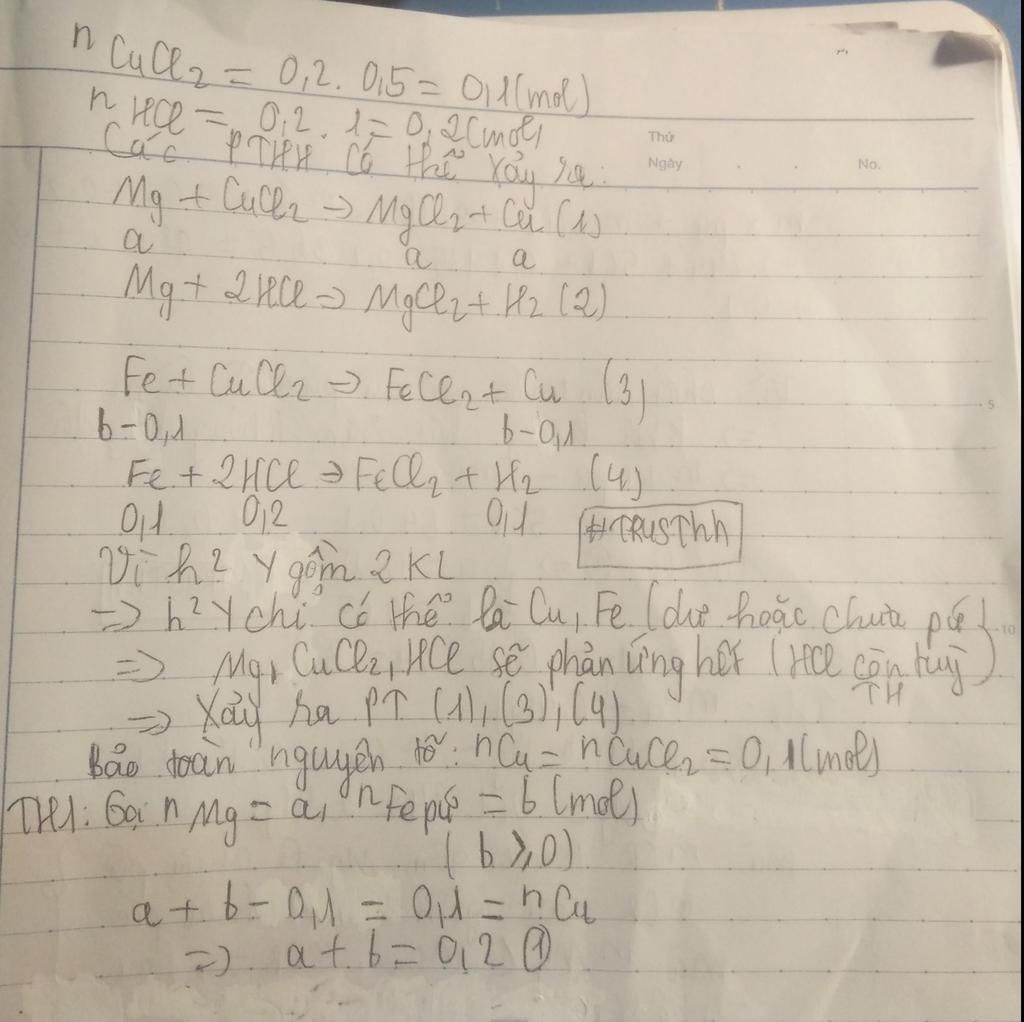 nCuCl2 = 0,2. 0,5 = 0,1(mol)
nHCl = 0,2. 1 = 0,2(mol)
Thứ
Các PTHH có thể xảy ra:
Ngày . . No.
Mg + CuCl2 → MgCl2 + Cu (1)
a a a
Mg + 2HCl → MgCl2 + H2 (2)
Fe + CuCl2 → FeCl2 + Cu (3)
5
b-0,1 b-0,1
Fe + 2HCl → FeCl2 + H2 (4)
0,1 0,2 0,1 #TRUSThh
Vì h² Y gồm 2 KL
=> h² Y chỉ có thể là Cu, Fe (dư hoặc chưa pứ)
10
=> Mg, CuCl2, HCl sẽ phản ứng hết (HCl còn tuỳ TH)
=> Xảy ra PT (1), (3), (4)
Bảo toàn nguyên tố: nCu = nCuCl2 = 0,1(mol)
TH1: Gọi nMg = a, nFe pứ = b (mol)
( b ⩾ 0)
a + b - 0,1 = 0,1 = nCu
=> a + b = 0,2 ①